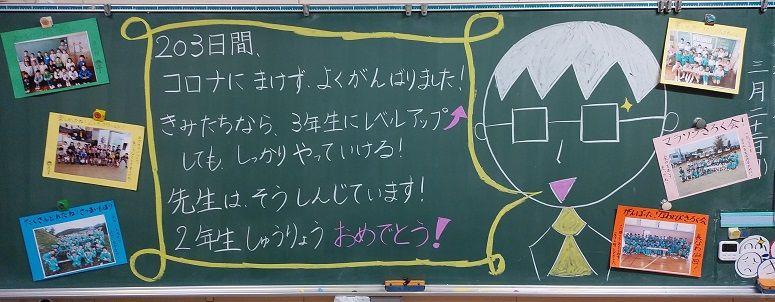 203日間、
コロナに まけず、よくがんばりました!
きみたちなら、3年生にレベルアップ
しても、しっかりやっていける!
先生は、そうしんじています!
2年生しゅうりょう おめでとう!
マラソンきろく会!